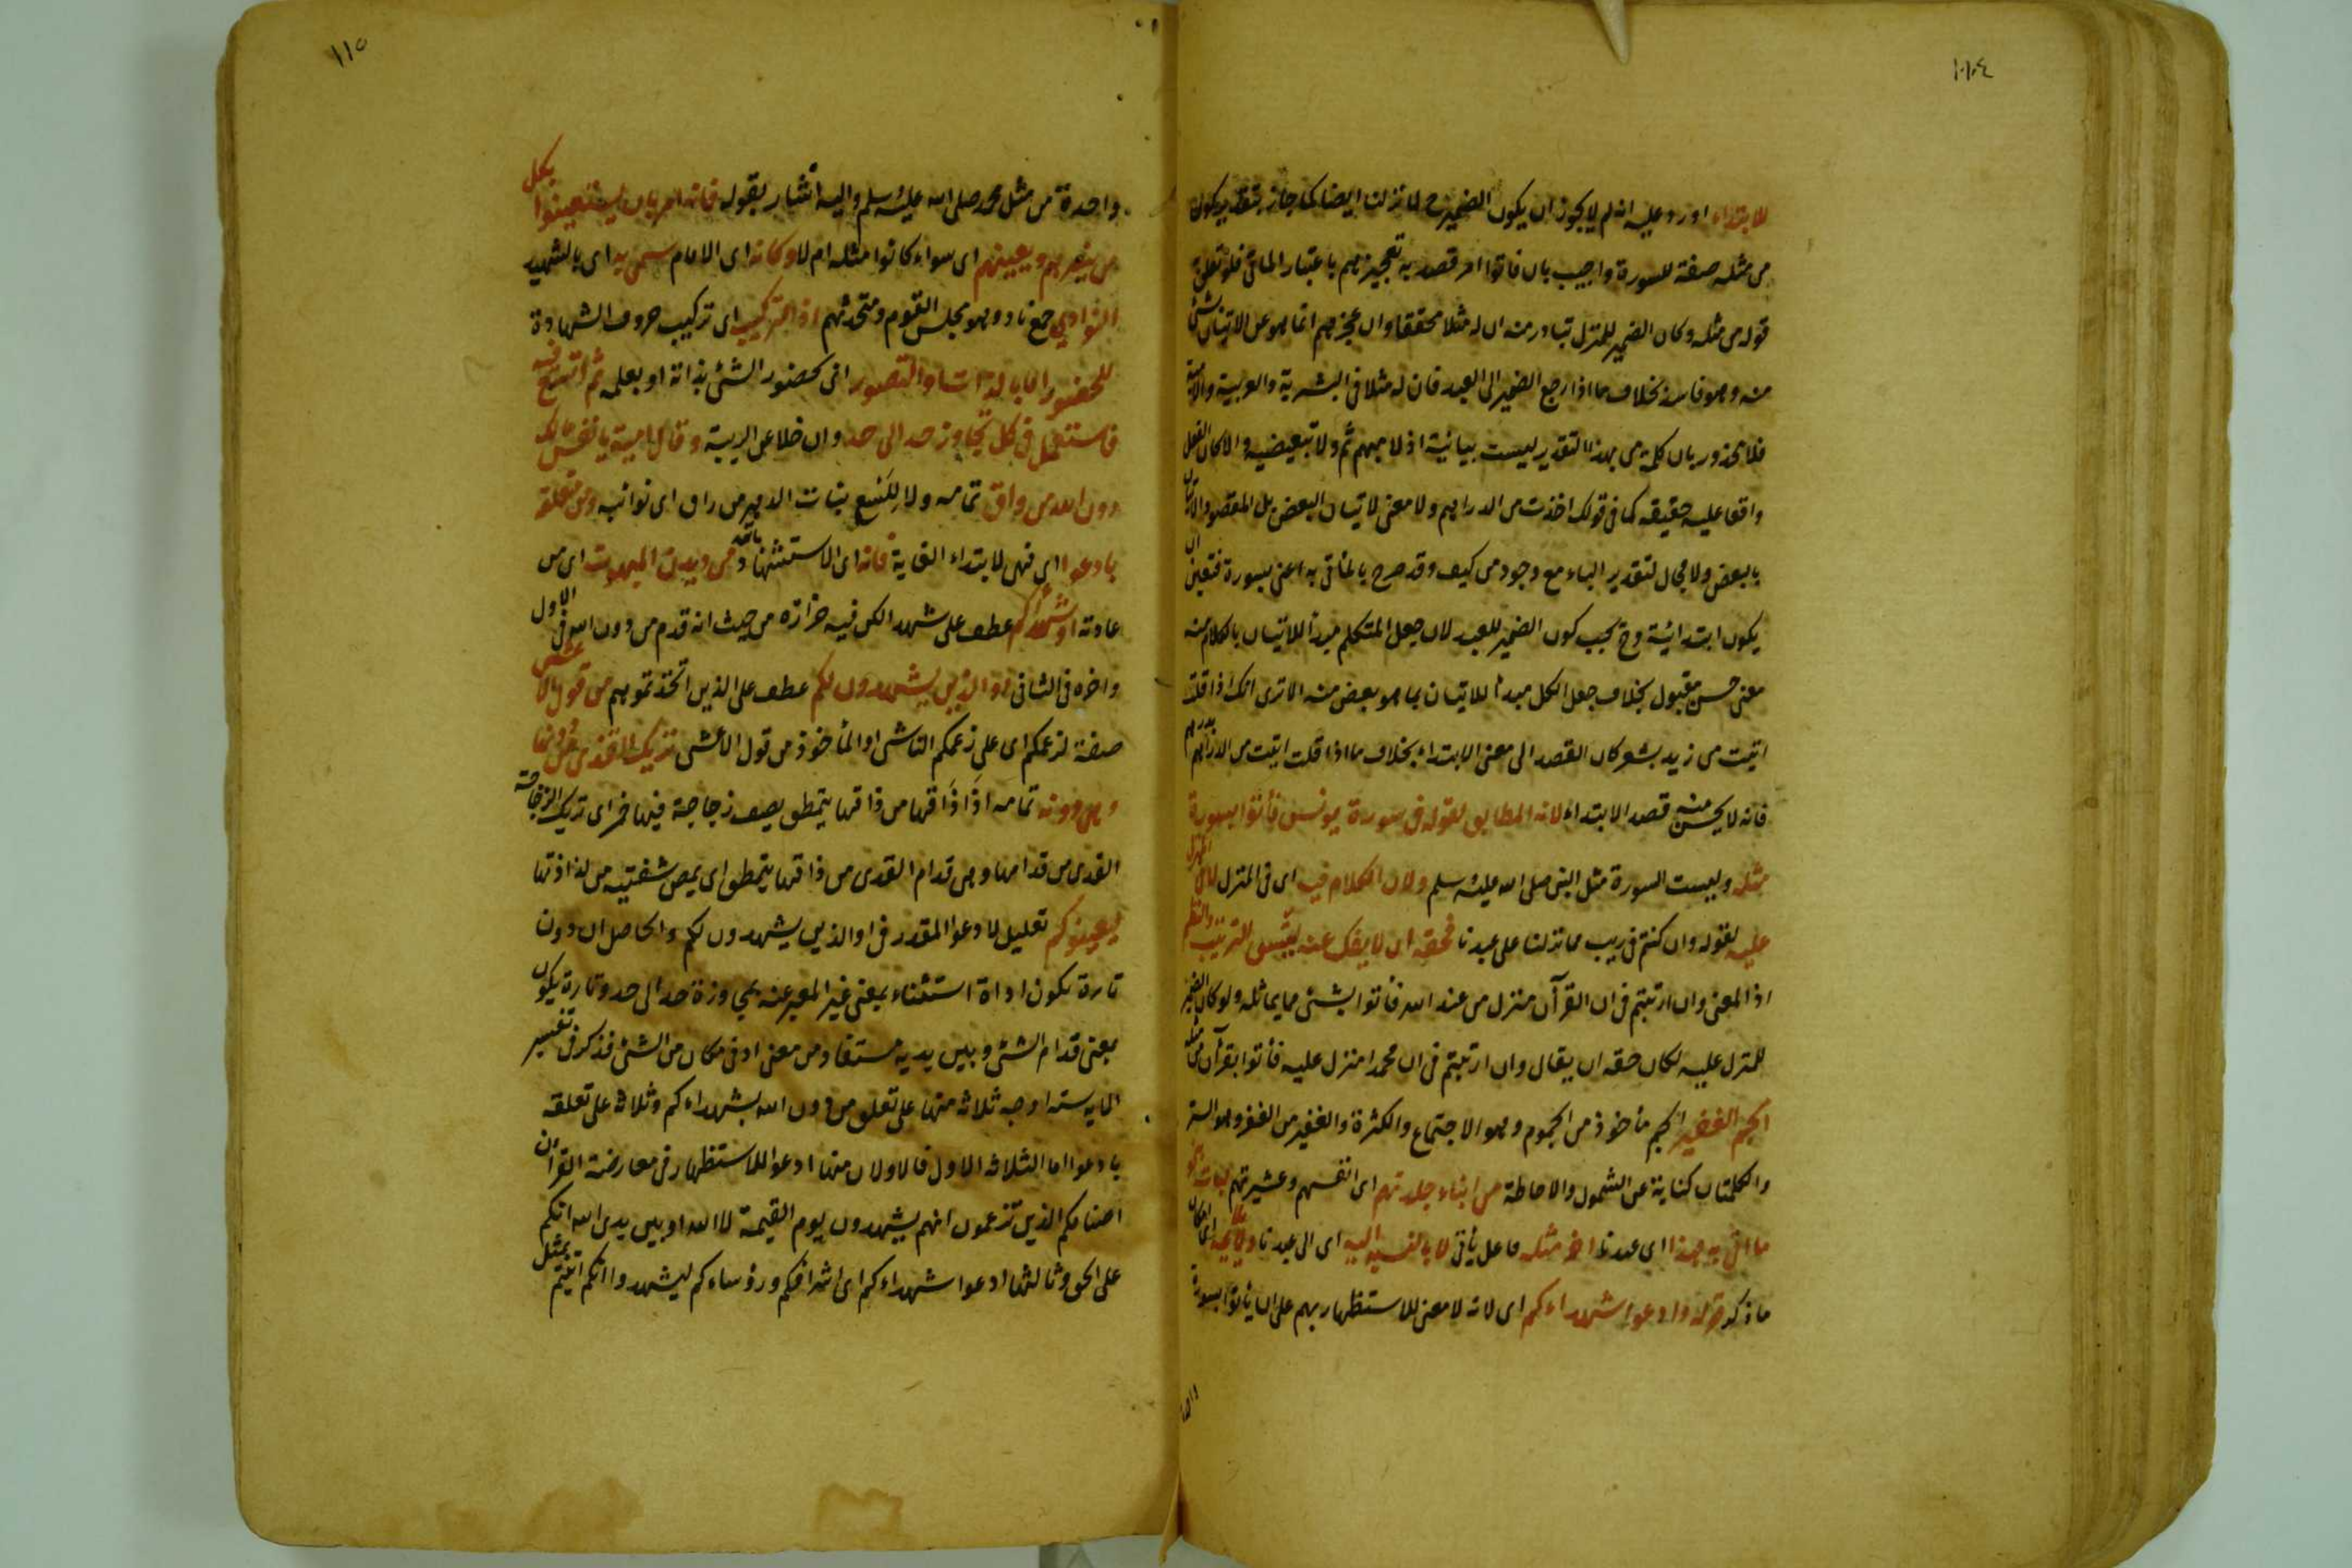 ١١٤
للابتداء اورد عليه انه لم لا يجوز ان يكون الضمير ح لما نزلنا ايضا كما جاز بتقدير كون
من مثله صفة للسورة واجيب بان فأتوا امر قصد به تعجيزهم باعتبار المأتى فلو تعلق
قوله من مثله وكان الضمير للمنزل تبادر منه ان له مثلا محققا وان عجزهم انما هو عن الاتيان بشئ
منه وهو فاسد بخلاف ما اذا رجع الضمير الى العبد فان له مثلا فى البشرية والعربية والامية
فلا محذور بان كلمة من بهذا التقدير ليست بيانية اذ لا مبهم ثم ولا تبعيضية والا كان الفعل
واقعا عليه حقيقة كما فى قولك اخذت من الدراهم ولا معنى لاتيان البعض بل المقصود الاتيان
بالبعض ولا مجال لتقدير الباء مع وجود من كيف وقد صرح بالمأتى به اعنى بسورة فتعين ان
يكون ابتدائية وح يجب كون الضمير للعبد لان جعل المتكلم مبدأ للاتيان بالكلام منه
معنى حسن مقبول بخلاف جعل الكل مبدأ للاتيان بما هو بعض منه الا ترى انك اذا قلت
اتيت من زيد بشعر كان القصد الى معنى الابتداء بخلاف ما اذا قلت اتيت من الدراهم بدرهم
فانه لا يحسن منه قصد الابتداء لانه المطابق لقوله فى سورة يونس فأتوا بسورة
مثله وليست السورة مثل النبى صلى الله عليه وسلم ولان الكلام فيه اى فى المنزل لا فى المنزل
عليه لقوله وان كنتم فى ريب مما نزلنا على عبدنا فحقه ان لا ينفك عنه ليتسق الترتيب والنظم
اذ المعنى وان ارتبتم فى ان القرآن منزل من عند الله فأتوا بشئ مما يماثله ولو كان الضمير
للمنزل عليه لكان حقه ان يقال وان ارتبتم فى ان محمدا منزل عليه فأتوا بقرآن من مثله
الجم الغفير الجم مأخوذ من الجموم وهو الاجتماع والكثرة والغفير من الغفر وهو الستر
والكلمتان كناية عن الشمول والاحاطة من ابناء جلدتهم اى انفسهم وعشيرتهم
ما اتى به هذا اى عبدنا اخر مثله فاعل يأتى لا بالنسبة اليه اى الى عبدنا ولا يلائمه
ما ذكر قوله وادعوا شهداءكم اى لانه لا معنى للاستظهار بهم على ان يأتوا بسورة
١١٥
واحدة من مثل محمد صلى الله عليه وسلم واليه اشار بقوله فانه امر بان يستعينوا بكل
من ينصرهم ويعينهم اى سواء كانوا مثله ام لا وكانه اى الامام سمى به اى بالشهيد
النوادي جمع ناد وهو مجلس القوم ومتحدثهم اذ التركيب اى تركيب حروف الشهادة
للحضور اما بالذات او التصور اى كحضور الشئ بذاته او بعلمه ثم اتسع فيه
فاستعمل فى كل تجاوز حد الى حد وان خلا عن الريبة وقال امية يا نفس مالك
دون الله من واق تمامه ولا للسع بنات الدهر من راق اى نوائبه ومن متعلقة
بادعوا اى فهى لابتداء الغاية فانه اى الاستشهاد بالله من ديدن المبهوت اى من
عادته او شهداءكم عطف على شهد لكن فيه حزازة من حيث انه قدم من دون الله فى الاول
واخره فى الثانى او الذين يشهدون لكم عطف على الذين اتخذتموهم من قول الاعشى
صفة لزعمكم اى على زعمكم الناشى او المأخوذ من قول الاعشى تريك القذى من دونها
وهى دونه تمامه اذا ذاقها من ذاقها يتمطق يصف زجاجة فيها خمر اى تريك الزجاجة
القدى من قدامها وهى قدام القدى من ذاقها يتمطق اى يمص شفتيه من لذاذتها
ليعينوكم تعليل لادعوا المقدر فى او الذين يشهدون لكم والحاصل ان دون
تارة تكون اداة استثناء بمعنى غير المعبر عنه بمجاوزة حد الى حد وتارة يكون
بمعنى قدام الشئ وبين يديه مستفاد من معنى ادنى مكان من الشئ فذكر فى تفسير
الآية ستة اوجه ثلاثة منها على تعلق من دون الله بشهداءكم وثلاثة على تعلقه
بادعوا اما الثلاثة الاول فالاولان منها ادعوا للاستظهار فى معارضة القرآن
اصنامكم الذين تزعمون انهم يشهدون يوم القيمة لا الله او بين يدى الله انكم
على الحق وثالثها ادعوا شهداءكم اى اشرافكم ورؤساءكم ليشهدوا انكم اتيتم بمثل